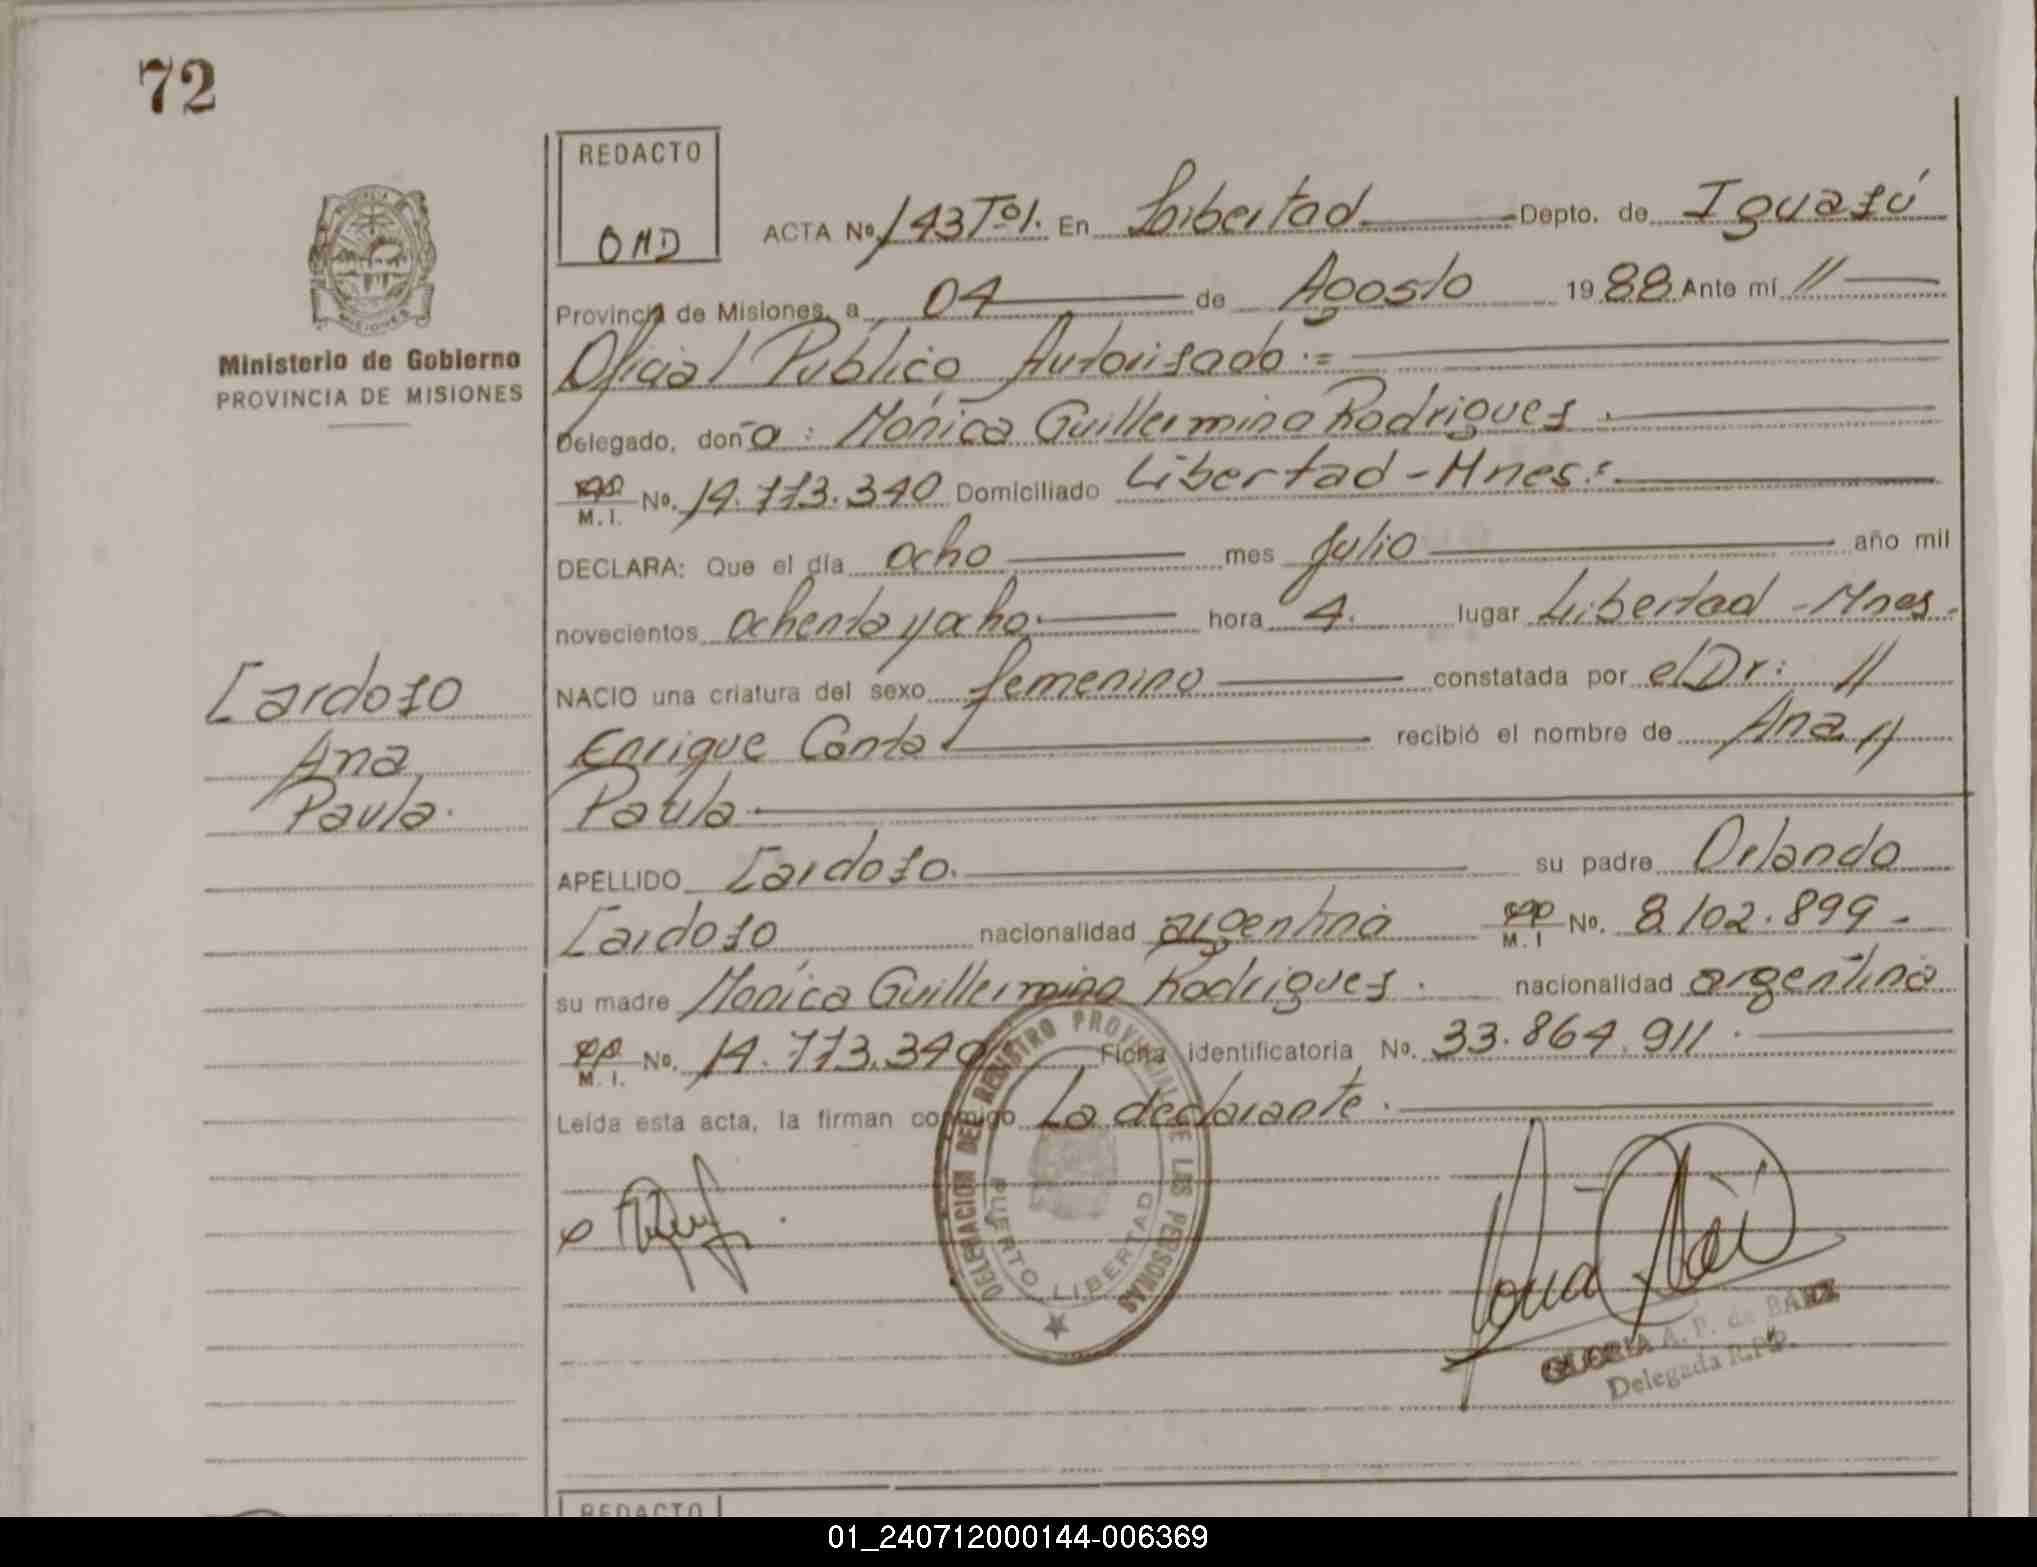 72
REDACTO
OMD
ACTA Nº 143 Tº1. En Libertad Depto. de Iguazú
Provincia de Misiones, a 04 de Agosto 1988 Ante mí //
Oficial Público Autorizado.=
Delegado, doña: Mónica Guillermina Rodrigues.
M. I. No. 14.113.340 Domiciliado Libertad - Mnes:
DECLARA: Que el día ocho mes Julio año mil
novecientos ochenta y ocho. hora 4. lugar Libertad - Mnes.
NACIO una criatura del sexo femenino constatada por el Dr: //
Enrique Canta. recibió el nombre de Ana //
Paula
APELLIDO Cardozo. su padre Orlando
Cardozo nacionalidad argentina M. I No. 8.102.899.
su madre Mónica Guillermina Rodrigues. nacionalidad argentina
M. I. No. 14.113.340 Ficha identificatoria No. 33.864.911.
Leída esta acta, la firman conmigo La declarante.
Ministerio de Gobierno
PROVINCIA DE MISIONES
MISIONES
Cardozo
Ana
Paula.
DELEGACION DEL REGISTRO PROVINCIAL DE LAS PERSONAS
PUERTO LIBERTAD
GLORIA A. P. de BAEZ
Delegada R.P.P.
REDACTO
01_240712000144-006369